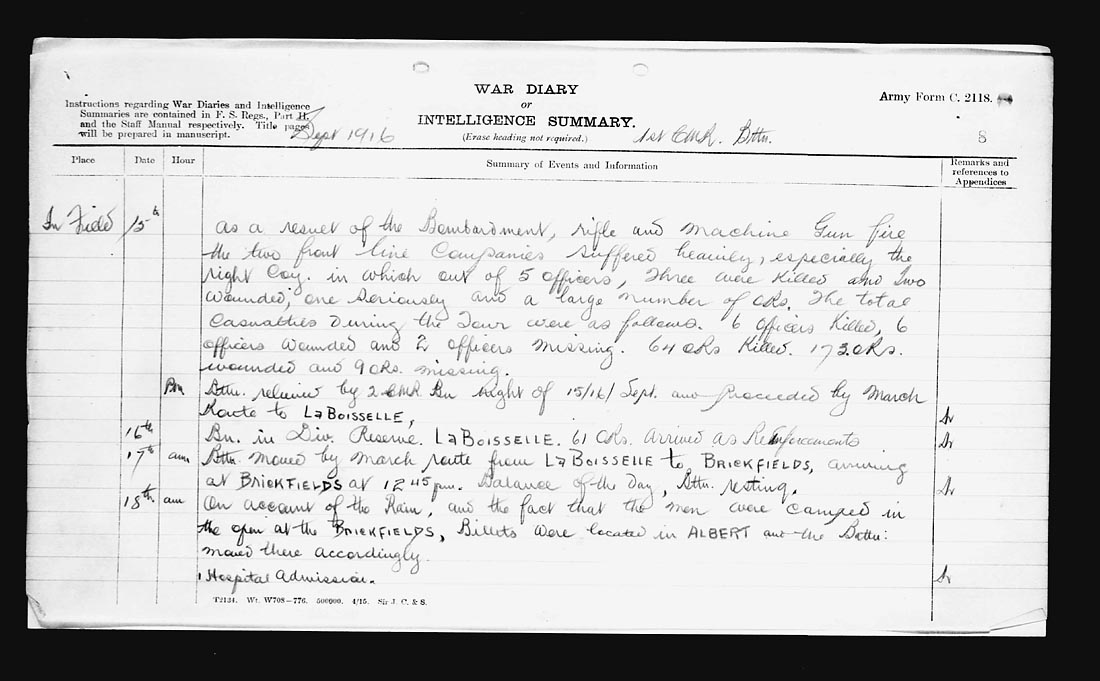 WAR DIARY
or
INTELLIGENCE SUMMARY.
(Erase heading not required.)
Army Form C. 2118.
Instructions regarding War Diaries and Intelligence
Summaries are contained in F. S. Regs., Part II.
and the Staff Manual respectively. Title pages
will be prepared in manuscript.
Sept 1916
1st CMR. Bttn.
8
Place
Date
Hour
Summary of Events and Information
Remarks and
references to
Appendices
In Field 15th as a result of the Bombardment, rifle and machine Gun fire
the two front line Companies suffered heavily, especially the
right Coy. in which out of 5 officers, Three were Killed and Two
Wounded; one seriously and a large number of ORs. The total
Casualties During the Tour were as follows. 6 Officers Killed, 6
officers Wounded and 2 officers missing. 64 ORs Killed. 173 ORs.
wounded and 9 ORs. missing.
Pm Bttn. relieved by 2 CMR Bn Night of 15/16/ Sept. and Proceeded by March
Route to La BOISSELLE,
16th Bn. in Div. Reserve. La BOISSELLE. 61 ORs. arrived as Reinforcements
17th am Bttn. moved by march route from La BOISSELLE to BRICKFIELDS, arriving
at BRICKFIELDS at 12 45 pm. Balance of the Day, Bttn. resting.
18th am On account of the Rain, and the fact that the men were camped in
the open at the BRICKFIELDS, Billets were located in ALBERT and the Battn:
moved there accordingly.
1 Hospital Admission.
T2134. Wt. W708—776. 500000. 4/15. Sir J. C. & S.